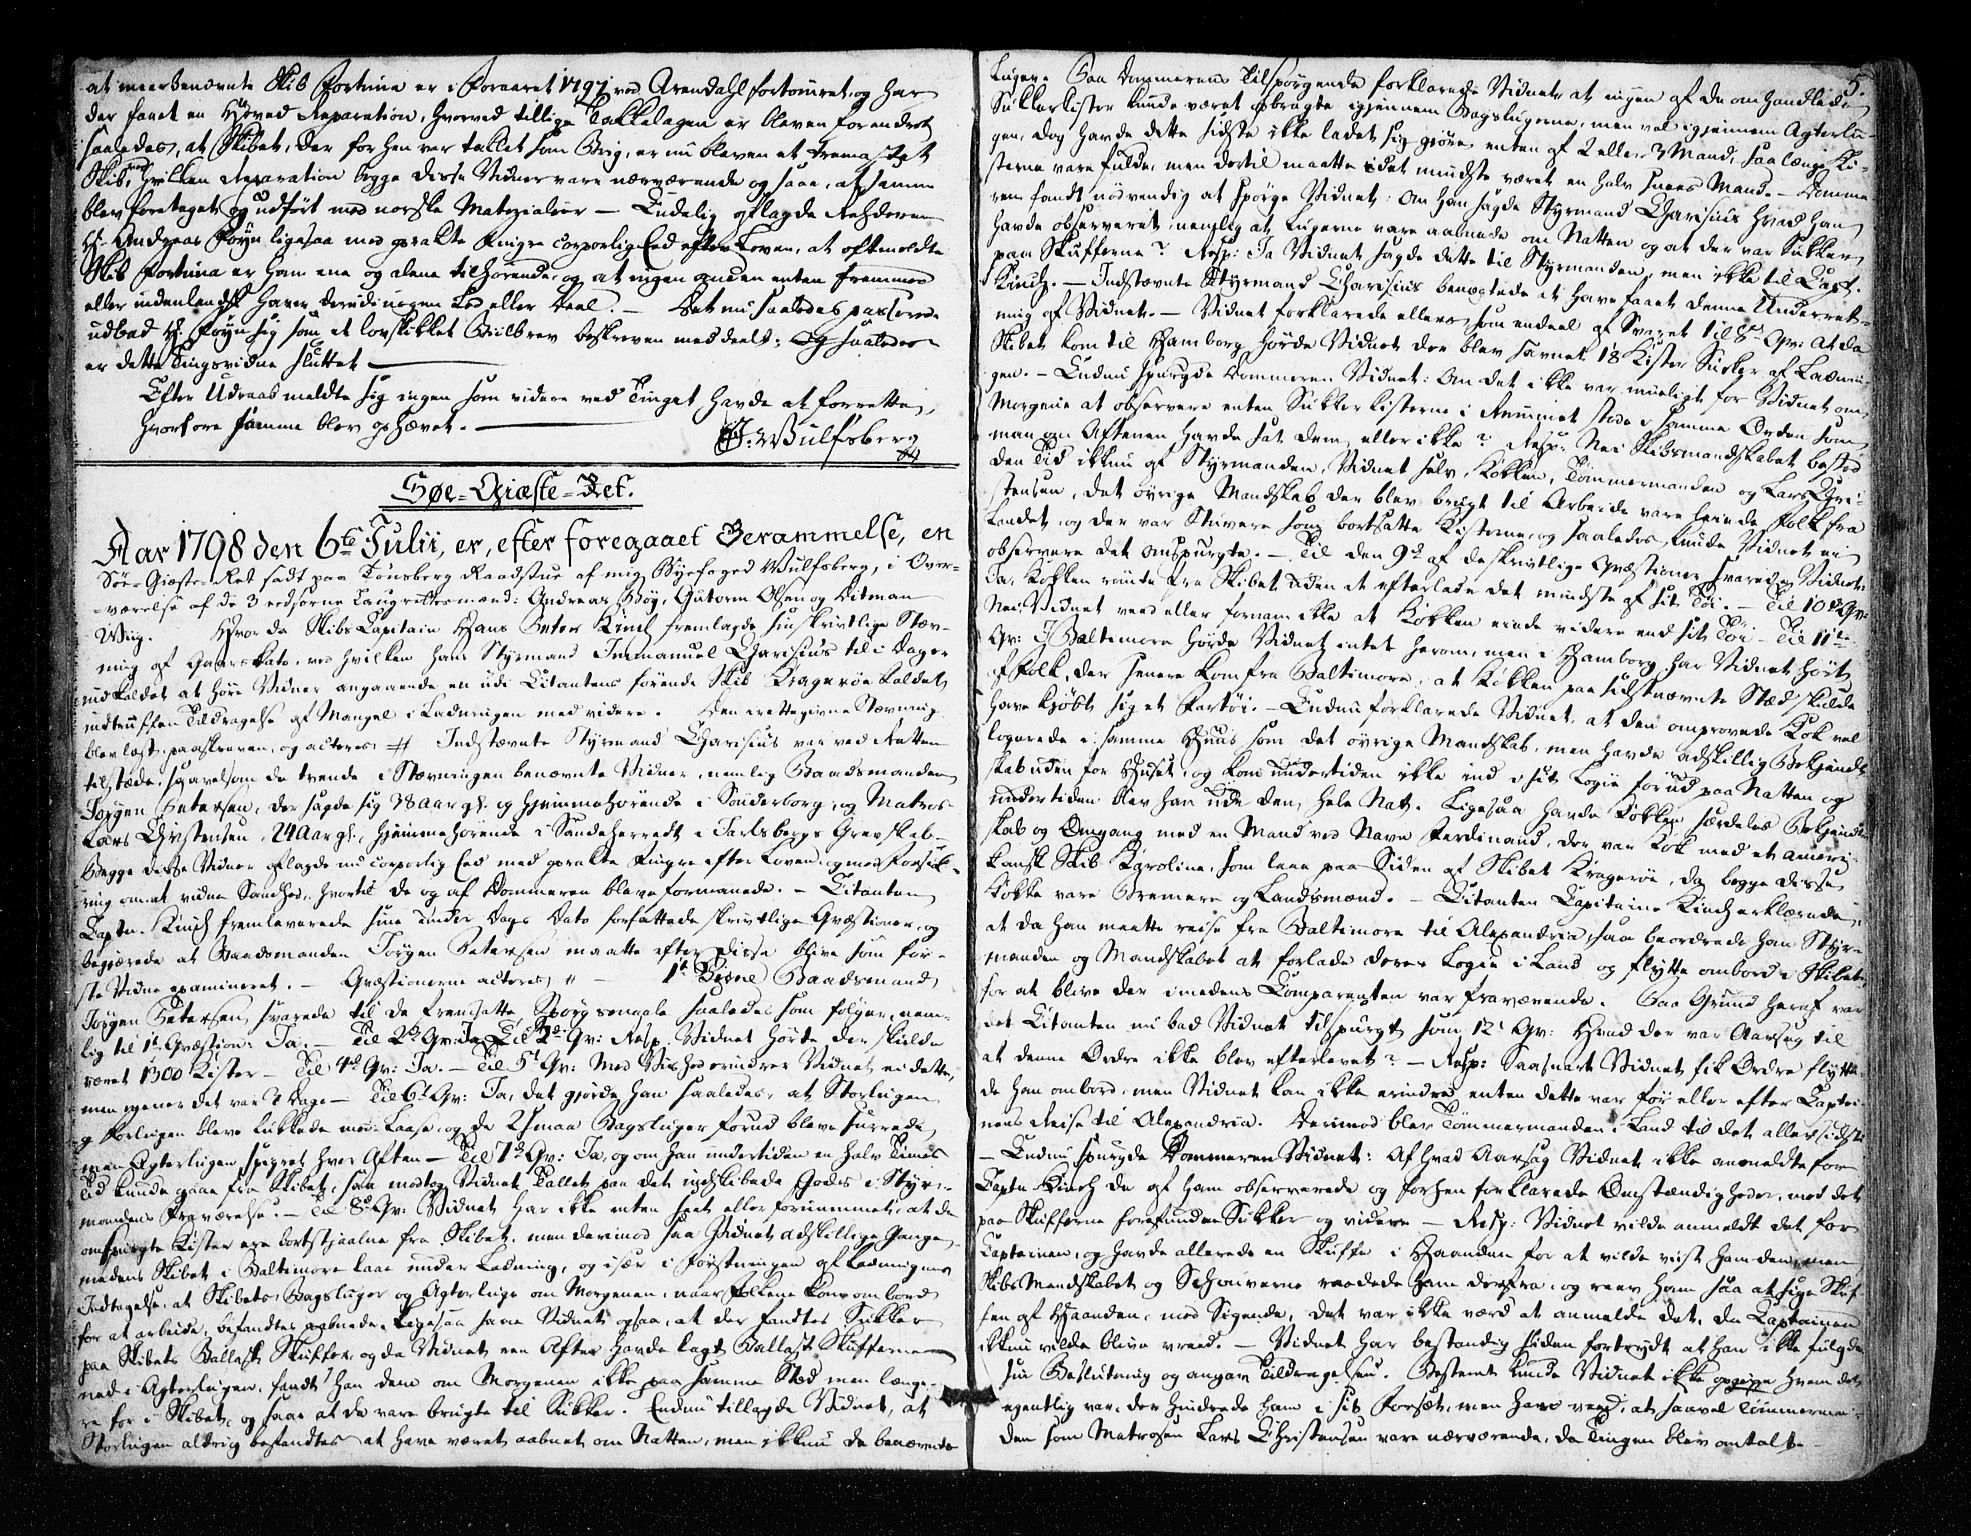 at meerbenævnte Skib Fortuna er i Foraaret 1797 ved Arendahl fortømret, og har
der faaet en Hoved Reparation, hvorved tillige Takkelagen er bleven forandret
saaledes, at Skibet, der forhen var taklet som Brig, er nu bleven et Tremastet
Skib, ved hvilken Reparation begge disse Vidner vare nærværende og saae, at samme
blev foretaget og udført med norske Materialier — Endelig aflagde Rehderen
Hr. Andreas Føyn ligesaa med oprakte Fingre corporlig Eed efter Loven, at oftmeldte
Skib Fortuna er ham ene og alene tilhørende, og at ingen anden enten fremmed
eller indenlandsk haver derudi nogen Lod eller Deel. — Det nu saaledes passerede
udbad Hr. Føyn sig som et lovskikket Biilbrev beskreven meddeelt; Og saaledes
er dette Tingsvidne sluttet —
Efter Udraab meldte sig ingen som videre ved Tinget havde at forrette,
hvorfore samme blev ophævet. —
J. Wulfsberg
Søe-Giæste-Ret.
Aar 1798 den 6te Julii, er, efter foregaaet Berammelse, en
Søe-Giæste-Ret sadt paa Tønsberg Raadstue af mig Byefoged Wulfsberg, i Over-
-værelse af de 3 eedsorne Laugrettesmænd: Andreas Bøy, Gutorm Olsen og Ditman
Wiig. Hvor da Skibs Capitain Hans Peter Kinch fremlagde sin skrivtlige Stæv-
ning af Gaarsdato, ved hvilken hans Styrmand Immanuel Charisius til i Dag er
indkaldet at høre Vidner angaaende en udi Citantens førende Skib Kragerøe kaldet
indtruffen Tildragelse af Mangel i Ladningen med videre. Den irettegivne Stævning
blev læst, paaskreven, og acteres # Indstævnte Styrmand Charisius var ved Retten
tilstæde, saavelsom de tvende i Stævningen benævnte Vidner, nemlig Baadsmanden
Jørgen Petersen, der sagde sig 28 aar gl. og hjemmehørende i Sønderborg, og Matros
Lars Christensen, 24 Aar gl., hjemmehørende i Sandeherredt i Jarlsbergs Grevskab.
Begge disse Vidner aflagde nu corporlig Eed med oprakte Fingre efter Loven, og med Forsik-
ring om at vidne Sandhed, hvortil de og af Dommeren bleve formanede. — Citanten
Capt. Kinch fremleverede sine under Dags Dato forfattede skrivtlige Qvæstioner, og
begjærede at Baadsmanden Jørgen Petersen maatte efter disse blive som før-
ste Vidne examineret. — Qvæstionerne acteres # — 1te Vidne Baadsmand
Jørgen Petersen, svarede til de fremsatte Spørgsmaale saaledes som følger, nem-
lig til 1te Qvæstion: Ja. — Til 2de Qv: Ja Til 3die Qv: Resp. Vidnet hørte der skulde
været 1300 Kister — Til 4de Qv: Ja. — Til 5te Qv: Med Vished erindrer Vidnet ei dette,
men mener det var 8 Dage — Til 6te Qv: Ja, det gjorde han saaledes, at Storlugen
og Forlugen bleve lukkede med Laase, og de 2 smaa Bagsluger forud bleve surrede
men Agterlugen spigret hver Aften — Til 7de Qv: Ja, og om han undertiden en halv Times
Tid kunde gaae fra Skibet, saa modtog Vidnet Tallet paa det indskibede Gods i Styr-
mandens Fraværelse. — Til 8de Qv: Vidnet har ikke enten seet eller fornummet, at de
omspurgte Kister ere bortstjaalne fra Skibet, men derimod saa Vidnet adskillige Gange,
medens Skibet i Baltimore laae under Ladning, og især i Førstningen af Ladningens
Indtagelse, at Skibets Bagsluger og Agterluge om Morgenen, naar Folkene kom ombord
for at arbeide, befandtes aabnede. Ligesaa saae Vidnet ogsaa, at der fandtes Sukker
paa Skibets Ballast Skuffer, og da Vidnet een Aften havde lagt Ballast Skufferne
ned i Agterlugen, fandt han dem om Morgenen ikke paa samme Sted men længe-
re for i Skibet, og saae at de vare brugte til Sukker. Endnu tillagde Vidnet, at
Storlugen aldrig befandtes at have været aabnet om Natten, men ikkun de benævnte
5.
Luger. Paa Dommerens Tilspørgende forklarede Vidnet at ingen af de omhandlede
Sukkerkister kunde været opbragte igjennem Bagslugerne, men vel igjennem Agterlu-
gen, dog havde dette sidste ikke ladet sig giøre enten af 2 eller 3 Mand, saa længe Ki-
sterne vare fulde, men dertil maatte i det mindste været en halv snees Mand. — Domme-
ren fandt nødvendig at spørge Vidnet: Om han sagde Styrmand Charisius hvad han
havde observeret, nemlig at Lugerne vare aabnede om Natten og at der var Sukker
paa Skufferne? Resp: Ja Vidnet sagde dette til Styrmanden, men ikke til Capt.
Kinch. — Indstævnte Styrmand Charisius benægtede at have faaet denne Underret-
ning af Vidnet. — Vidnet forklarede ellers som endeel af Svaret til 8de Qv: At da
Skibet kom til Hamborg hørde Vidnet der blev savnet 18 Kister Sukker af Ladnin-
gen. — Endnu spurgde Dommeren Vidnet: Om det ikke var mueligt for Vidnet om
Morgenen at observere enten Sukkerkisterne i Rummet stode i samme Orden som
man om Aftenen havde sat dem, eller ikke? Resp: Nei Skibsmandskabet bestod
den Tid ikkun af Styrmanden, Vidnet selv, Kokken, Tømmermanden og Lars Chri-
stensen, det øvrige Mandskab der blev brugt til Arbeide vare leiede Folk fra
Landet, og der var Stuvere som bortsatte Kisterne, og saaledes kunde Vidnet ei
observere det omspurgte. — Til den 9de af de skrivtlige Qvæstioner svarede Vidnet:
Ja, Kokken rømte fra Skibet uden at efterlade det mindste af sit Tøi. — Til 10de Qv:
Nei Vidnet veed eller fornam ikke at Kokken eiede videre end sit Tøi — Til 11te
Qv: I Baltimore hørde Vidnet intet herom, men i Hamborg har Vidnet hørt
af Folk, der senere kom fra Baltimore, at Kokken paa sidstnævnte Stæd skulde
have kjøbt sig et Fartøi. — Endnu forklarede Vidnet, at den omprovede Kok vel
logerede i samme Huus som det øvrige Mandskab, men havde adskillig Bekjendt-
skab uden for Huset, og kom undertiden ikke ind i sit Logie førud paa Natten og
undertiden blev han ude den hele Nat. Ligesaa havde Kokken særdeles Bekjendt-
skab og Omgang med en Mand ved Navn Ferdinand, der var Kok med et ameri-
kansk Skib Karoline, som laae paa Siden af Skibet Kragerøe, da begge disse
Kokke vare Bremere og Landsmænd. — Citanten Capitaine Kinch erklærede,
at da han maatte reise fra Baltimore til Alexandria, saa beordrede han Styr-
manden og Mandskabet at forlade deres Logie i Land og flytte ombord i Skibet,
for at blive der imedens Comparenten var fraværende. Paa Grund heraf var
det Citanten nu bad Vidnet tilspurgt som 12te Qv: Hvad der var Aarsag til
at denne Ordre ikke blev efterlevet? — Resp: Saasnart Vidnet fik Ordre flytte-
de han ombord, men Vidnet kan ikke erindre enten dette var før eller efter Captei-
nens Reise til Alexandria. Derimod blev Tømmermanden i Land til det allersidste
— Endnu spurgde Dommeren Vidnet: Af hvad Aarsag Vidnet ikke anmeldte for
Captn. Kinch de af ham observerede og forhen forklarede Omstændigheder, med det
paa Skufferne forefundne Sukker og videre — Resp: Vidnet vilde anmeldt det for
Capteinen, og havde allerede en Skuffe i Haanden for at vilde viist ham den, men
Skibs Mandskabet og Schauverne raadede ham derfra, og reev ham saa at sige Skuf-
fen af Haanden, med Sigende, det var ikke værd at anmelde det, da Capteinen
ikkun vilde blive vreed. — Vidnet har bestandig siden fortrydt at han ikke fulgde
sin Beslutning og angav Tildragelsen. Bestemt kunde Vidnet ikke opgive hvem det
egentlig var, der hindrede ham i sit Forsæt, men han veed, at saavel Tømmerman-
den som Matrosen Lars Christensen vare nærværende, da Tingen blev omtalt. —